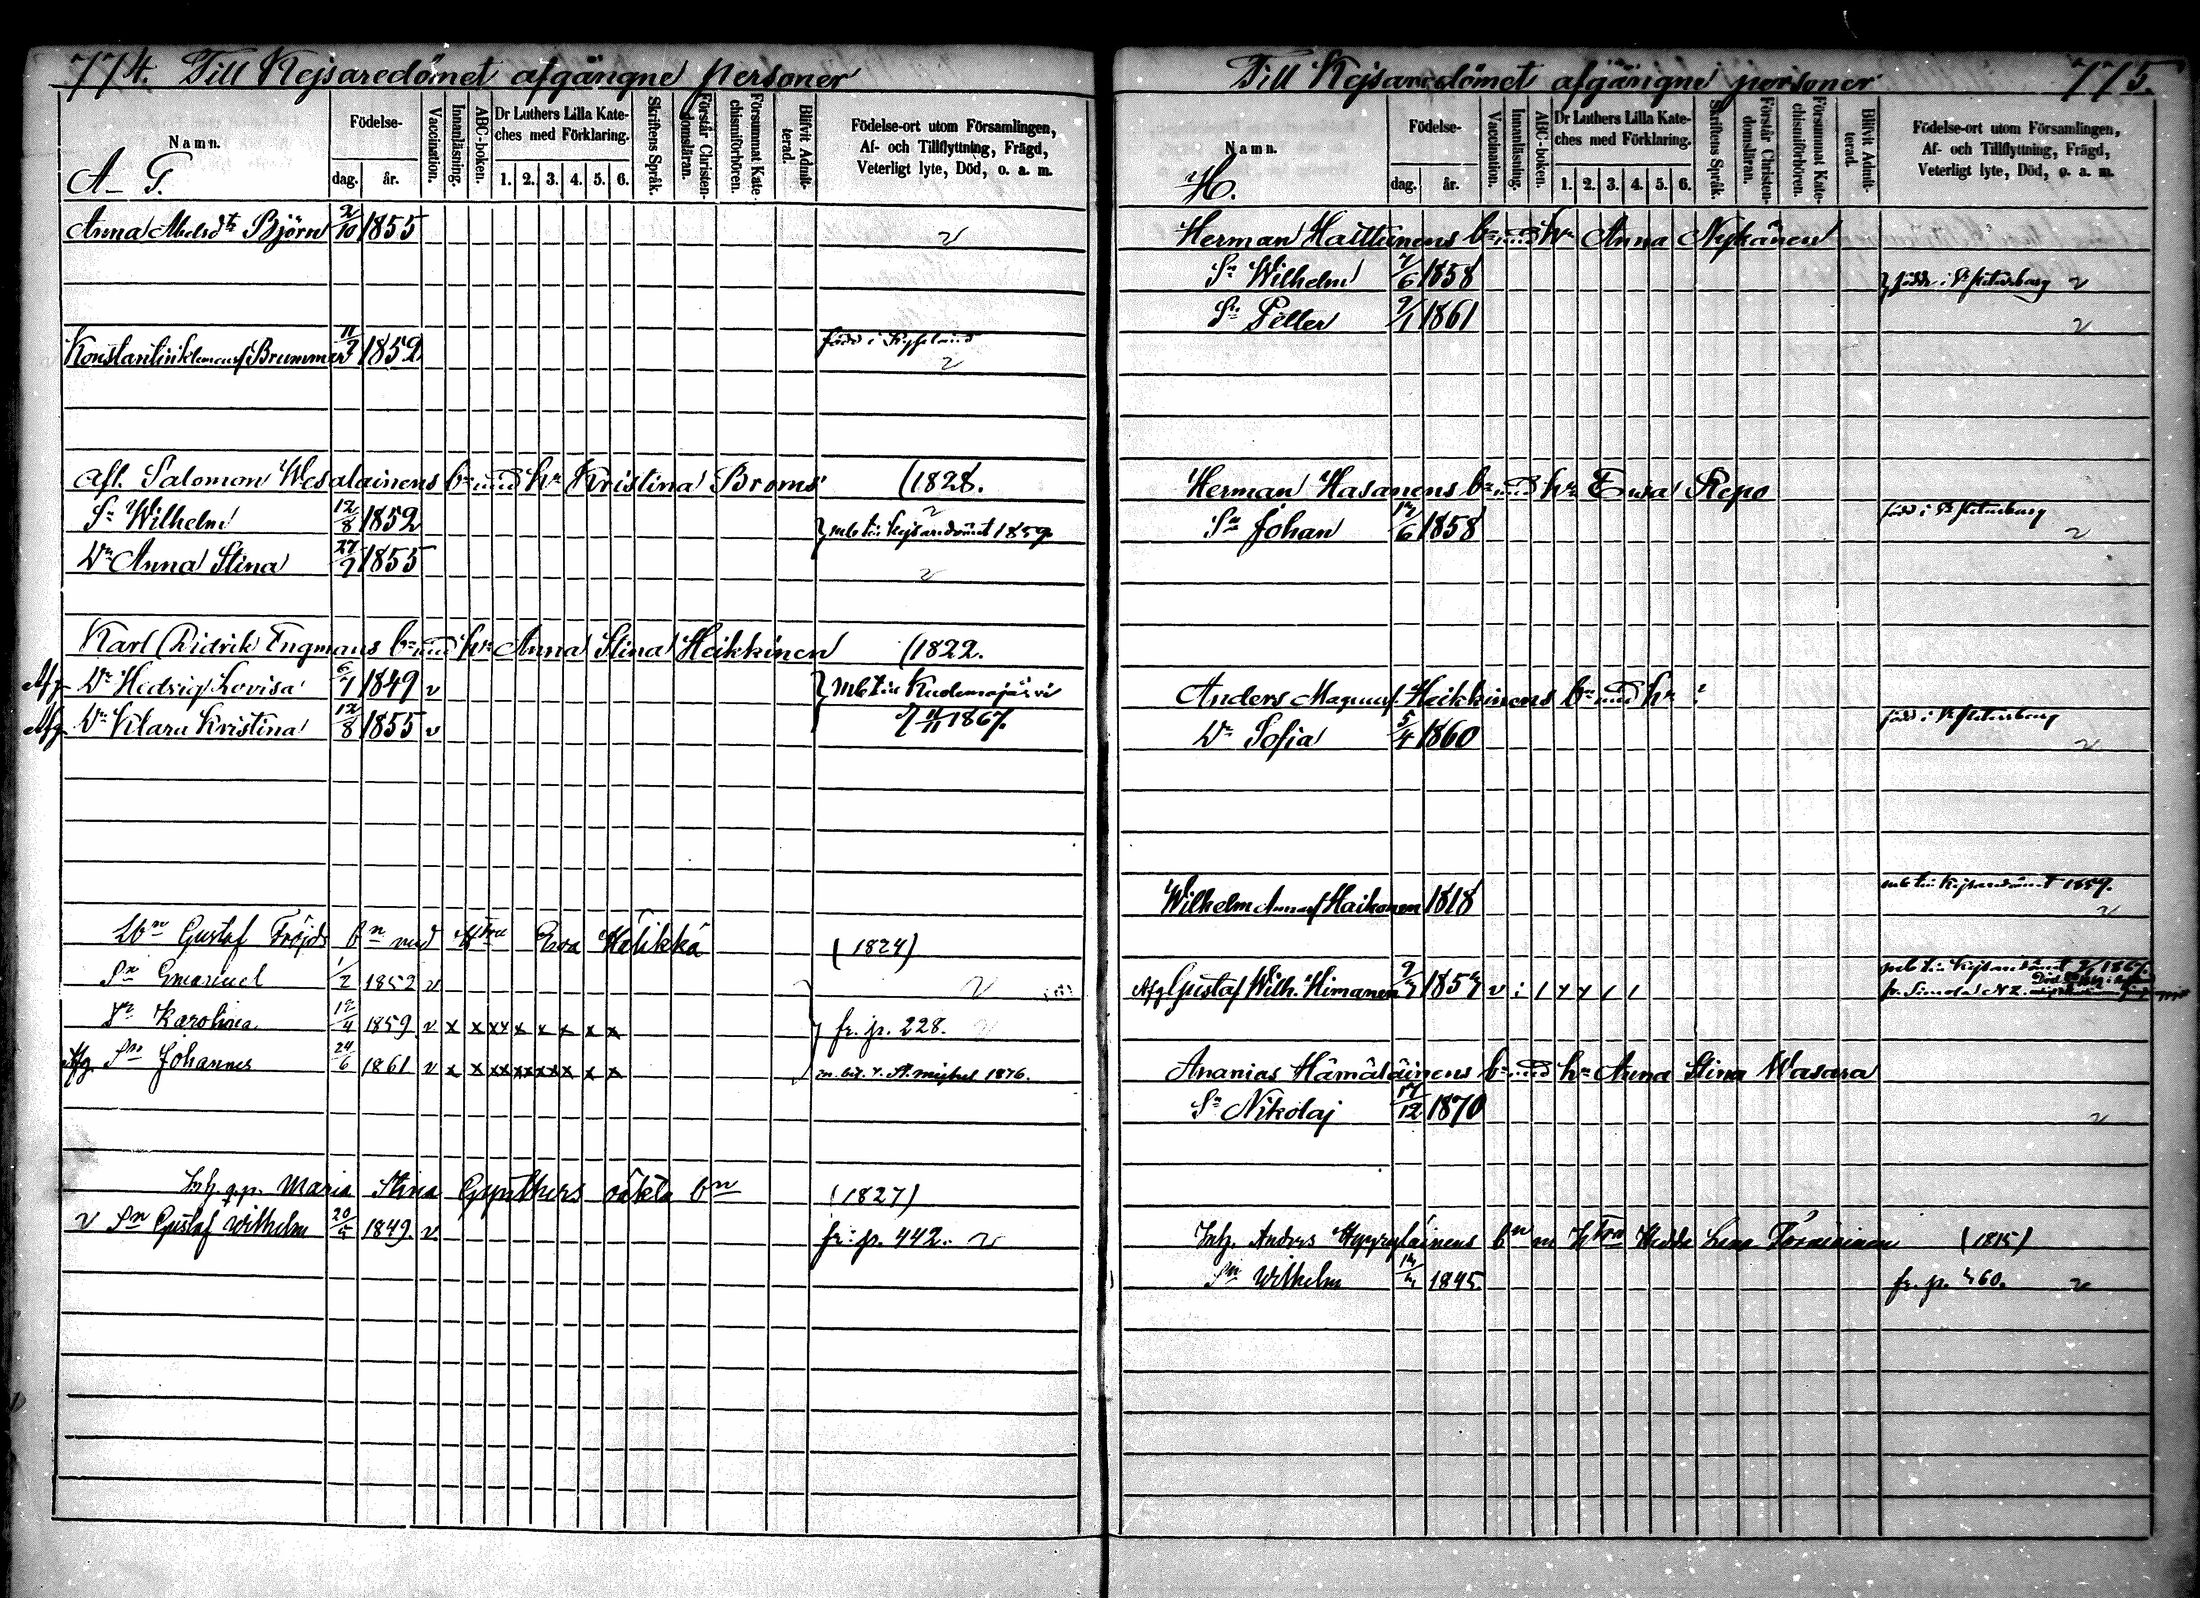 774. Till Kejsaredömet afgångne personer
Namn.
A–G.
Födelse-
dag.
år.
Vaccination.
Innanläsning.
ABC-boken.
Dr Luthers Lilla Kate-
ches med Förklaring.
1. 2. 3. 4. 5. 6.
Skriftens Språk.
Förstår Christen-
domsläran.
Försummat Kate-
chismiförhören.
Blifvit Admit-
terad.
Födelse-ort utom Församlingen,
Af- och Tillflyttning, Frägd,
Veterligt lyte, Död, o. a. m.
Anna Björn 2/10 1855
Konstantin Brummer 11/7 1852 född i
Afl. Salomon Wesalainens bn med hn Kristina Broms (1828.
Sn Wilhelm 12/8 1852 mb till Kejsaredömet 1859
Dn Anna Stina 27/7 1855
Karl Didrik Engmans bn med hn Anna Stina Heikkinen (1822.
Afg Dn Hedvig Lovisa 6/1 1849 v mb till
Afg Dn Klara Kristina 12/8 1855 v 1867.
Gustaf Fröjds bn med Eva (1824)
Sn Emanuel 1/2 1852 v
Dn Karolina 12/4 1859 v x x xx x x x x x fr. p. 228.
Afg. Sn Johannes 24/6 1861 v x x xx xx xx x x x 1876.
Inh. Maria Stina Gynthers oäkta bn (1827)
v Sn Gustaf Wilhelm 20/5 1849. v. fr. p. 442. v
Till Kejsaredömet afgångne personer 775.
Namn.
H.
Födelse-
dag.
år.
Vaccination.
Innanläsning.
ABC-boken.
Dr Luthers Lilla Kate-
ches med Förklaring.
1. 2. 3. 4. 5. 6.
Skriftens Språk.
Förstår Christen-
domsläran.
Försummat Kate-
chismiförhören.
Blifvit Admit-
terad.
Födelse-ort utom Församlingen,
Af- och Tillflyttning, Frägd,
Veterligt lyte, Död, o. a. m.
Herman Hattunens bn med hn Anna Nykänen
Sn Wilhelm 7/6 1858 födde i St Petersburg v
Sn Petter 9/1 1861 v
Herman Hasanens bn med hn Ewa Repo
Sn Johan 17/6 1858 född i St Petersburg v
Anders Magnus Heikkinens bn med hn ?
Dn Sofia 5/4 1860 född i St Petersburg v
Wilhelm Haikonen 1818 mb till Kejsaredömet 1859. v
Afg Gustaf Wilh. Himanen 1857 v mb till Kejsaredömet 1867.
fr. Simola N 2.
Ananias Hämäläinens bn med hn Anna Stina Wasara
Sn Nikolaj 17/12 1870 v
Inh. Anders bn m Hedda Lena (1815)
Sn Wilhelm 1845. fr. p. 460. v